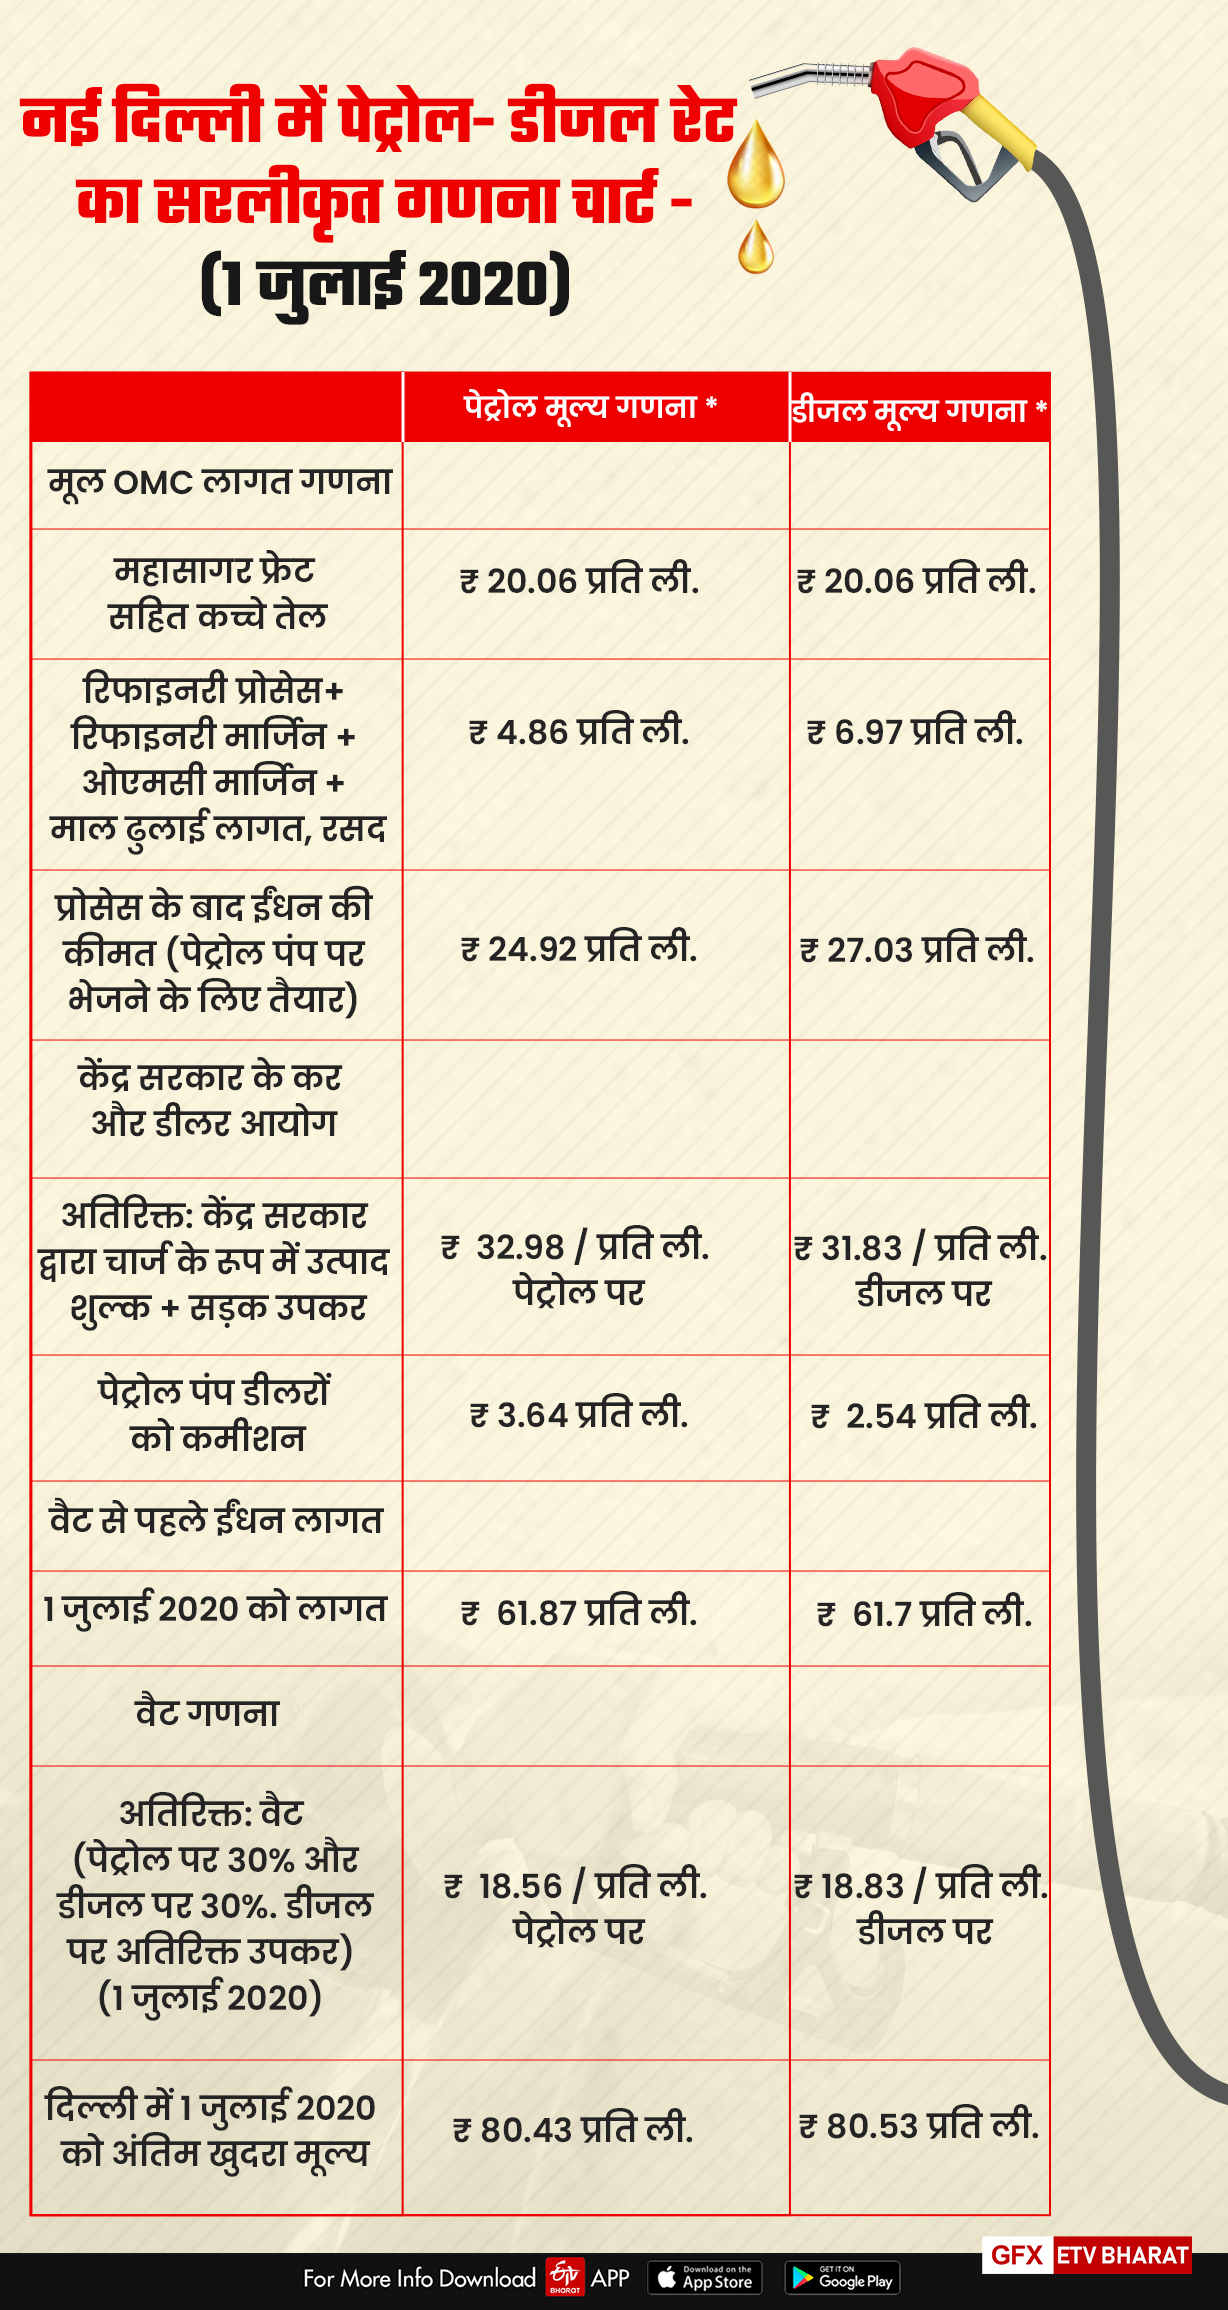 नई दिल्ली में पेट्रोल- डीजल रेट
का सरलीकृत गणना चार्ट -
(1 जुलाई 2020)
पेट्रोल मूल्य गणना *
डीजल मूल्य गणना *
मूल OMC लागत गणना
महासागर फ्रेट
सहित कच्चे तेल
₹ 20.06 प्रति ली.
₹ 20.06 प्रति ली.
रिफाइनरी प्रोसेस+
रिफाइनरी मार्जिन +
ओएमसी मार्जिन +
माल ढुलाई लागत, रसद
₹ 4.86 प्रति ली.
₹ 6.97 प्रति ली.
प्रोसेस के बाद ईंधन की
कीमत (पेट्रोल पंप पर
भेजने के लिए तैयार)
₹ 24.92 प्रति ली.
₹ 27.03 प्रति ली.
केंद्र सरकार के कर
और डीलर आयोग
अतिरिक्त: केंद्र सरकार
द्वारा चार्ज के रूप में उत्पाद
शुल्क + सड़क उपकर
₹ 32.98 / प्रति ली.
पेट्रोल पर
₹ 31.83 / प्रति ली.
डीजल पर
पेट्रोल पंप डीलरों
को कमीशन
₹ 3.64 प्रति ली.
₹ 2.54 प्रति ली.
वैट से पहले ईंधन लागत
1 जुलाई 2020 को लागत
₹ 61.87 प्रति ली.
₹ 61.7 प्रति ली.
वैट गणना
अतिरिक्त: वैट
(पेट्रोल पर 30% और
डीजल पर 30%. डीजल
पर अतिरिक्त उपकर)
(1 जुलाई 2020)
₹ 18.56 / प्रति ली.
पेट्रोल पर
₹ 18.83 / प्रति ली.
डीजल पर
दिल्ली में 1 जुलाई 2020
को अंतिम खुदरा मूल्य
₹ 80.43 प्रति ली.
₹ 80.53 प्रति ली.
GFX ETV BHARAT
For More Info Download ETV BHARAT APP
Download on the
App Store
GET IT ON
Google Play